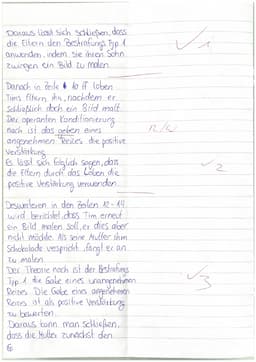 Daraus lässt sich schließen, dass
die Eltern den Bestrafungs Typ 1
anwenden, indem sie ihren Sohn
zwingen ein Bild zu malen.
✓ 1
Danach in Zeile 10 ff loben
Tims Eltern ihn, nachdem er
schließlich doch ein Bild malt.
Der operanten Konditionierung
nach ist das geben eines
angenehmen Reizes die positive
Verstärkung.
Es lässt sich folglich sagen, dass
die Eltern durch das Loben die
positive Verstärkung verwenden.
✓ 2
Desweiteren in den Zeilen 12-14
wird berichtet, dass Tim erneut
ein Bild malen soll, er dies aber
nicht möchte. Als seine Mutter ihm
Schokolade verspricht, fängt er an
zu malen.
Der Theorie nach ist der Bestrafungs
Typ 1 die Gabe eines unangenehmen
Reizes. Die Gabe eines angenehmen
Reizes ist als positive Verstärkung
zu bewerten.
✓ 3
Daraus kann man schließen,
dass die Mutter zunächst den